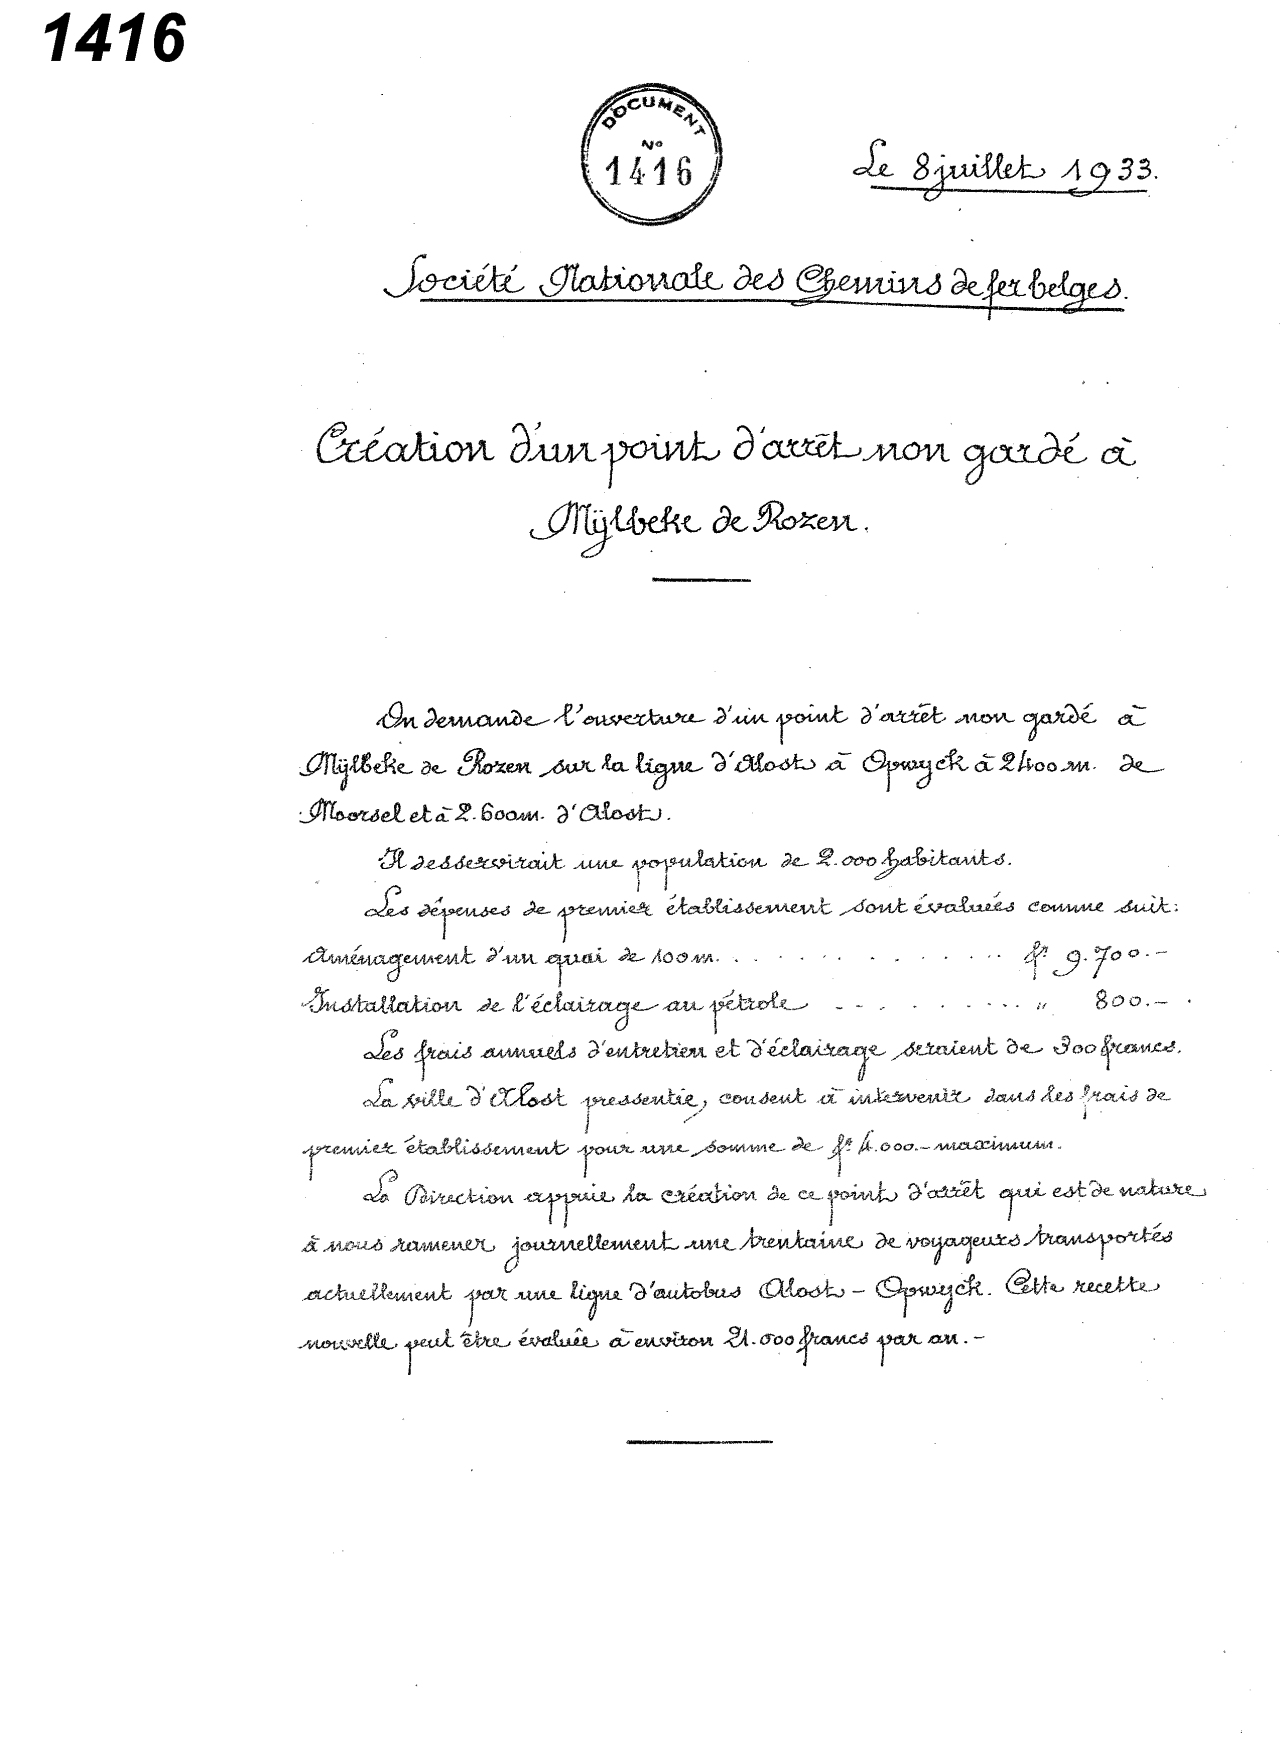 1416
DOCUMENT
No
1416
Le 8 juillet 1933.
Société Nationale des Chemins de fer belges.
Création d'un point d'arrêt non gardé à
Mÿlbeke de Rozen.
On demande l'ouverture d'un point d'arrêt non gardé à
Mÿlbeke de Rozen sur la ligne d'Alost à Opwyck à 2400 m. de
Moorsel et à 2.600 m. d'Alost.
Il desservirait une population de 2.000 habitants.
Les dépenses de premier établissement sont évaluées comme suit:
Aménagement d'un quai de 100 m. . . . . . . . . . . . . . fr 9.700.-
Installation de l'éclairage au pétrole . . . . . . . . . . " 800.-
Les frais annuels d'entretien et d'éclairage seraient de 300 francs.
La ville d'Alost pressentie, consent à intervenir dans les frais de
premier établissement pour une somme de fr 4.000.- maximum.
La Direction appuie la création de ce point d'arrêt qui est de nature
à nous ramener journellement une trentaine de voyageurs transportés
actuellement par une ligne d'autobus Alost - Opwyck. Cette recette
nouvelle peut être évaluée à environ 21.000 francs par an.-